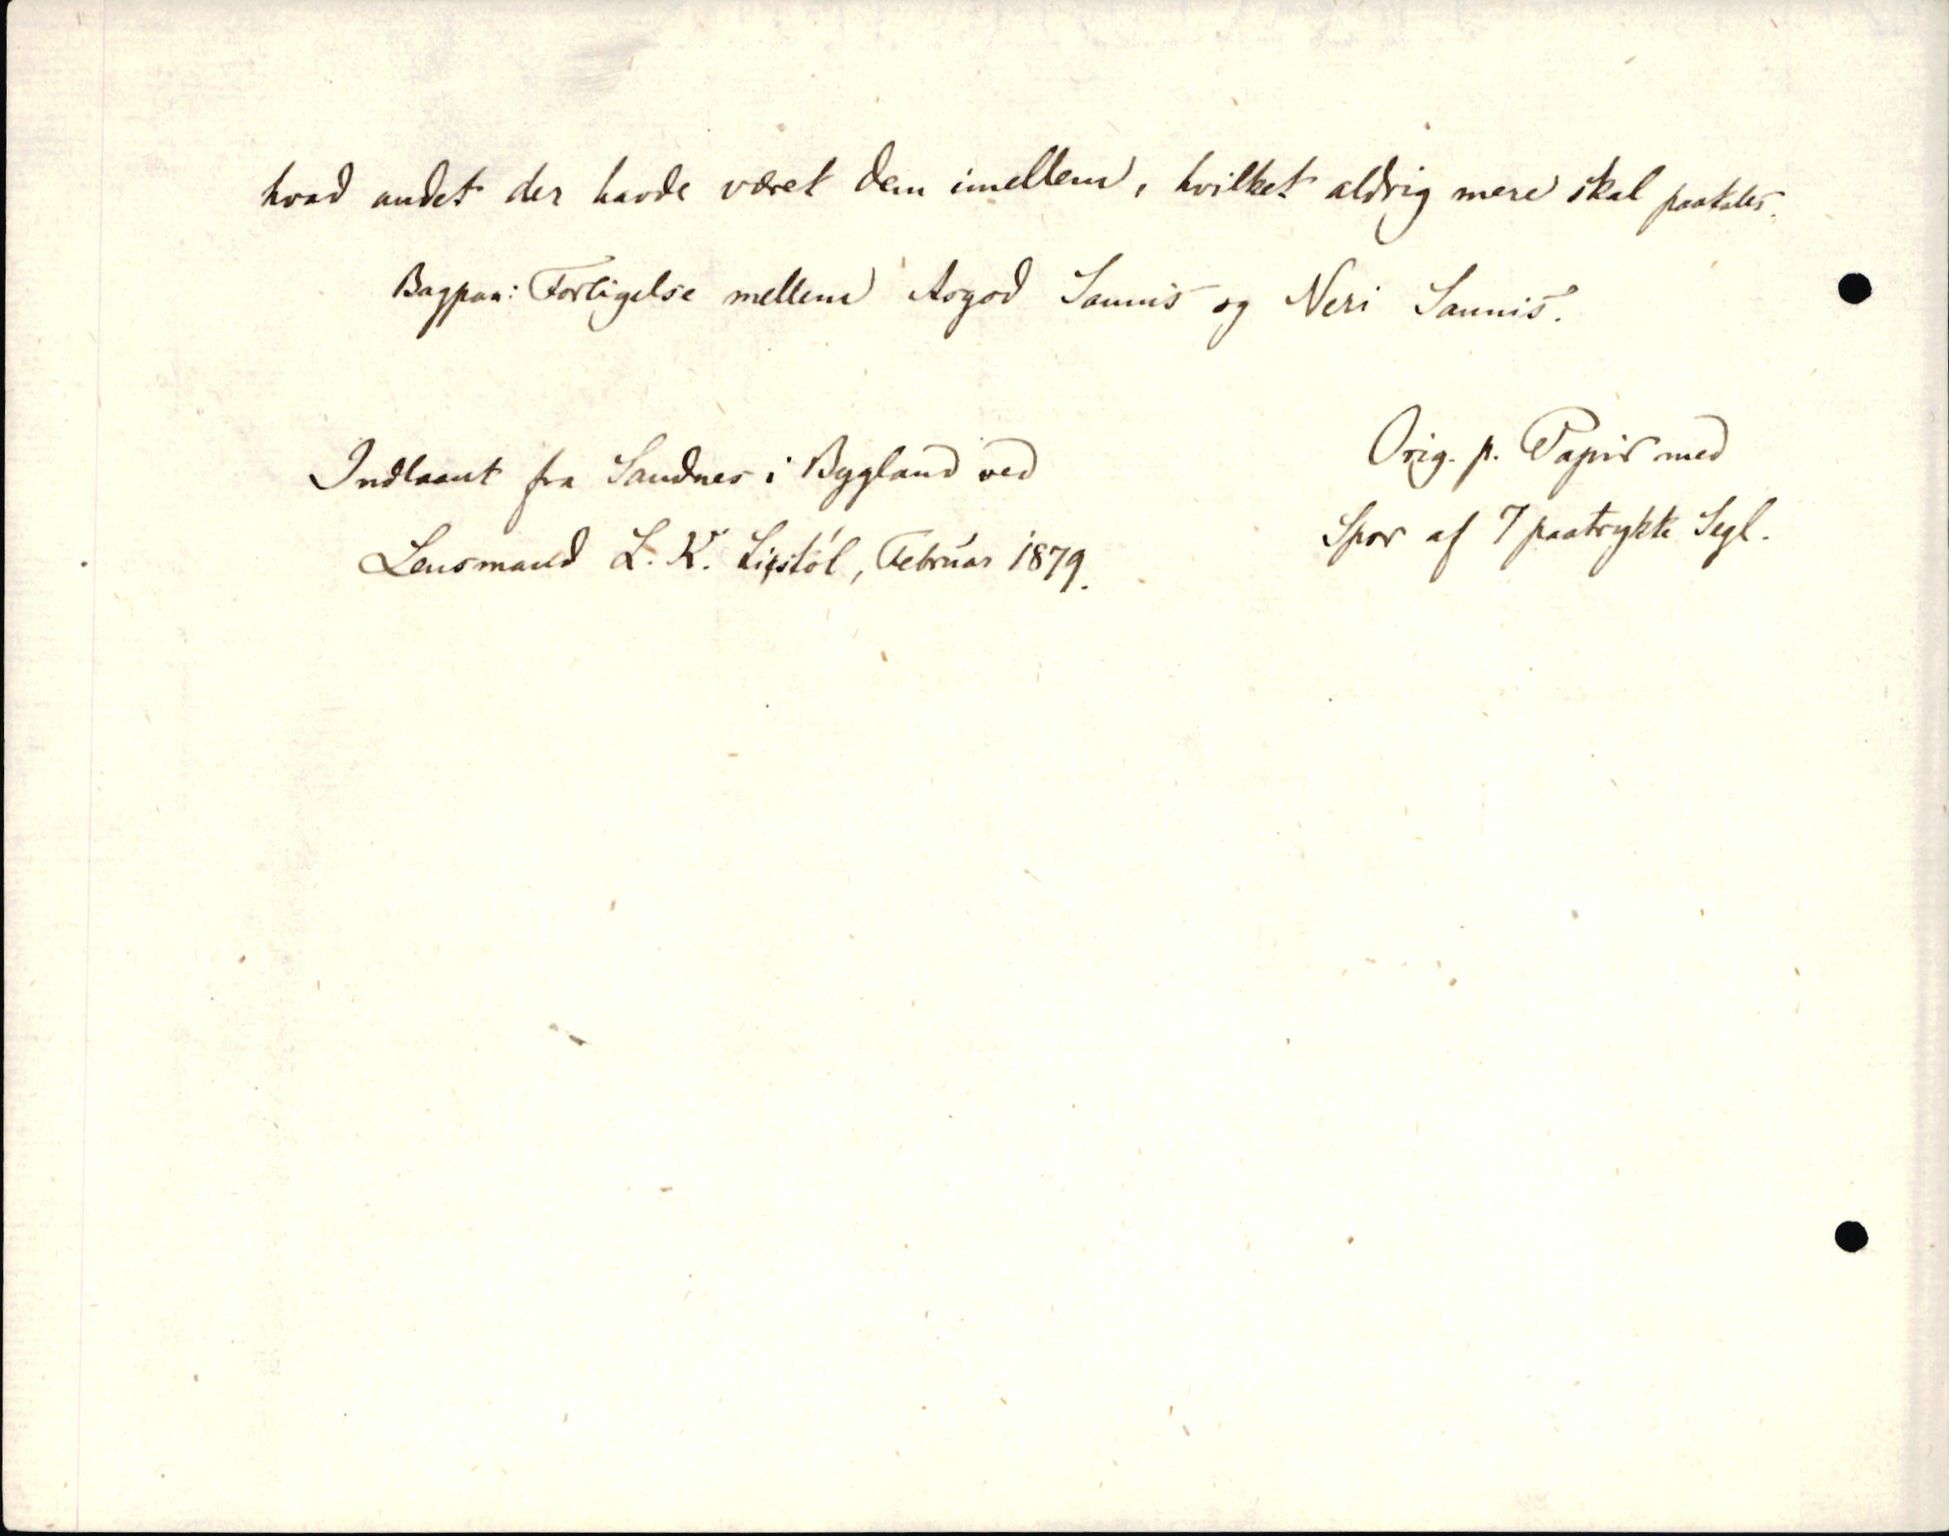 hvad andet der havde været dem imellem, hvilket aldrig mere skal paatales.
Bagpaa: Forligelse mellem Asgod Sannis og Neri Sannis.
Indlaant fra Sandnes i Bygland ved
Lensmand L. K. Liestöl, Februar 1879.
Orig. p. Papir med
Spor af 7 paatrykte Segl.